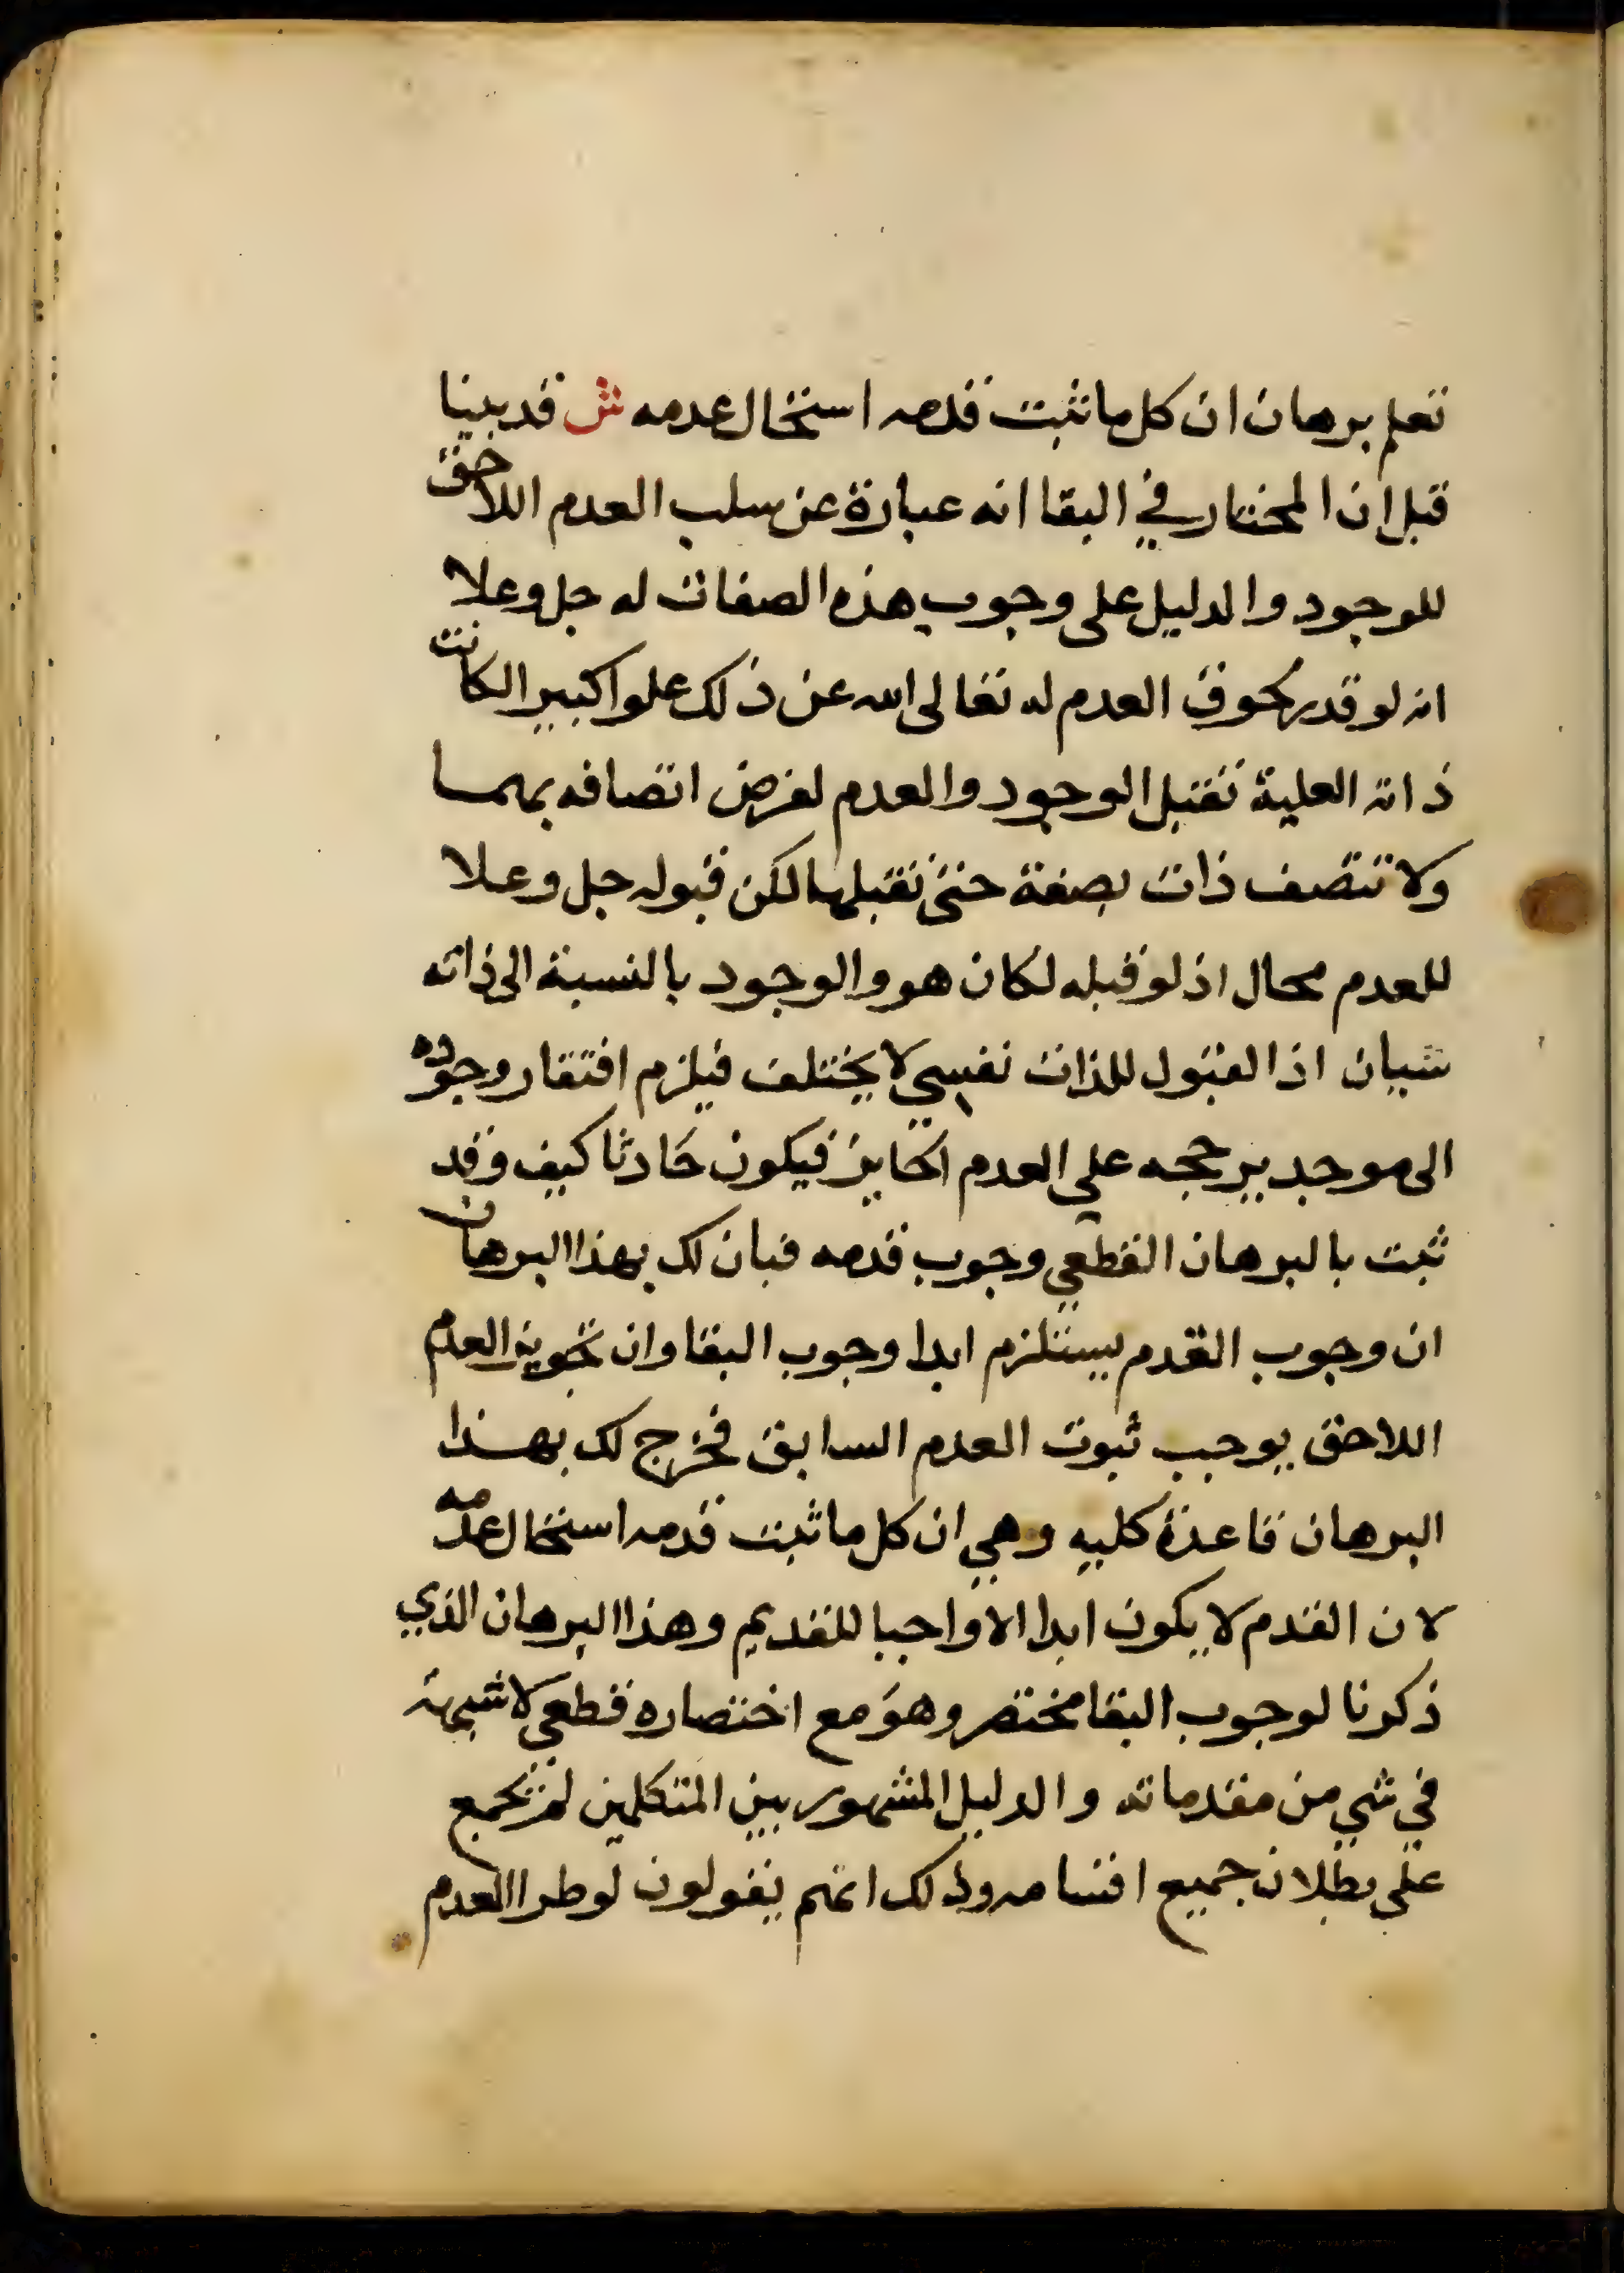 تعلم برهان ان كل ما ثبت قدمه استحال عدمه ش قد بينا
قبل ان المختار في البقا انه عبارة عن سلب العدم اللاحق
للوجود والدليل على وجوب هذه الصفات له جل وعلا
انه لو قدر لحوق العدم له تعالى الله عن ذلك علوا كبيرا لكانت
ذاته العلية تقبل الوجود والعدم لفرض اتصافه بهما
ولا تتصف ذات بصفة حتى تقبلها لكن قبوله جل وعلا
للعدم محال اذ لو قبله لكان هو والوجود بالنسبة الى ذاته
شيان اذ القبول للذات نفسي لا يختلف فيلزم افتقار وجوده
الى موجد يرجحه على العدم الجايز فيكون حادثا كيف وقد
ثبت بالبرهان القطعي وجوب قدمه فبان لك بهذا البرهان
ان وجوب القدم يستلزم ابدا وجوب البقا وان تجويز العدم
اللاحق يوجب ثبوت العدم السابق فخرج لك بهذا
البرهان قاعدة كليه وهي ان كل ما ثبت قدمه استحال عدمه
لان القدم لا يكون ابدا الا واجبا للقديم وهذا البرهان الذي
ذكرنا لوجوب البقا مختصر وهو مع اختصاره قطعي لا شبهة
في شي من مقدماته والدليل المشهور بين المتكلمين لم يجمع
على بطلان جميع اقسامه وذلك انهم يقولون لو طرا العدم